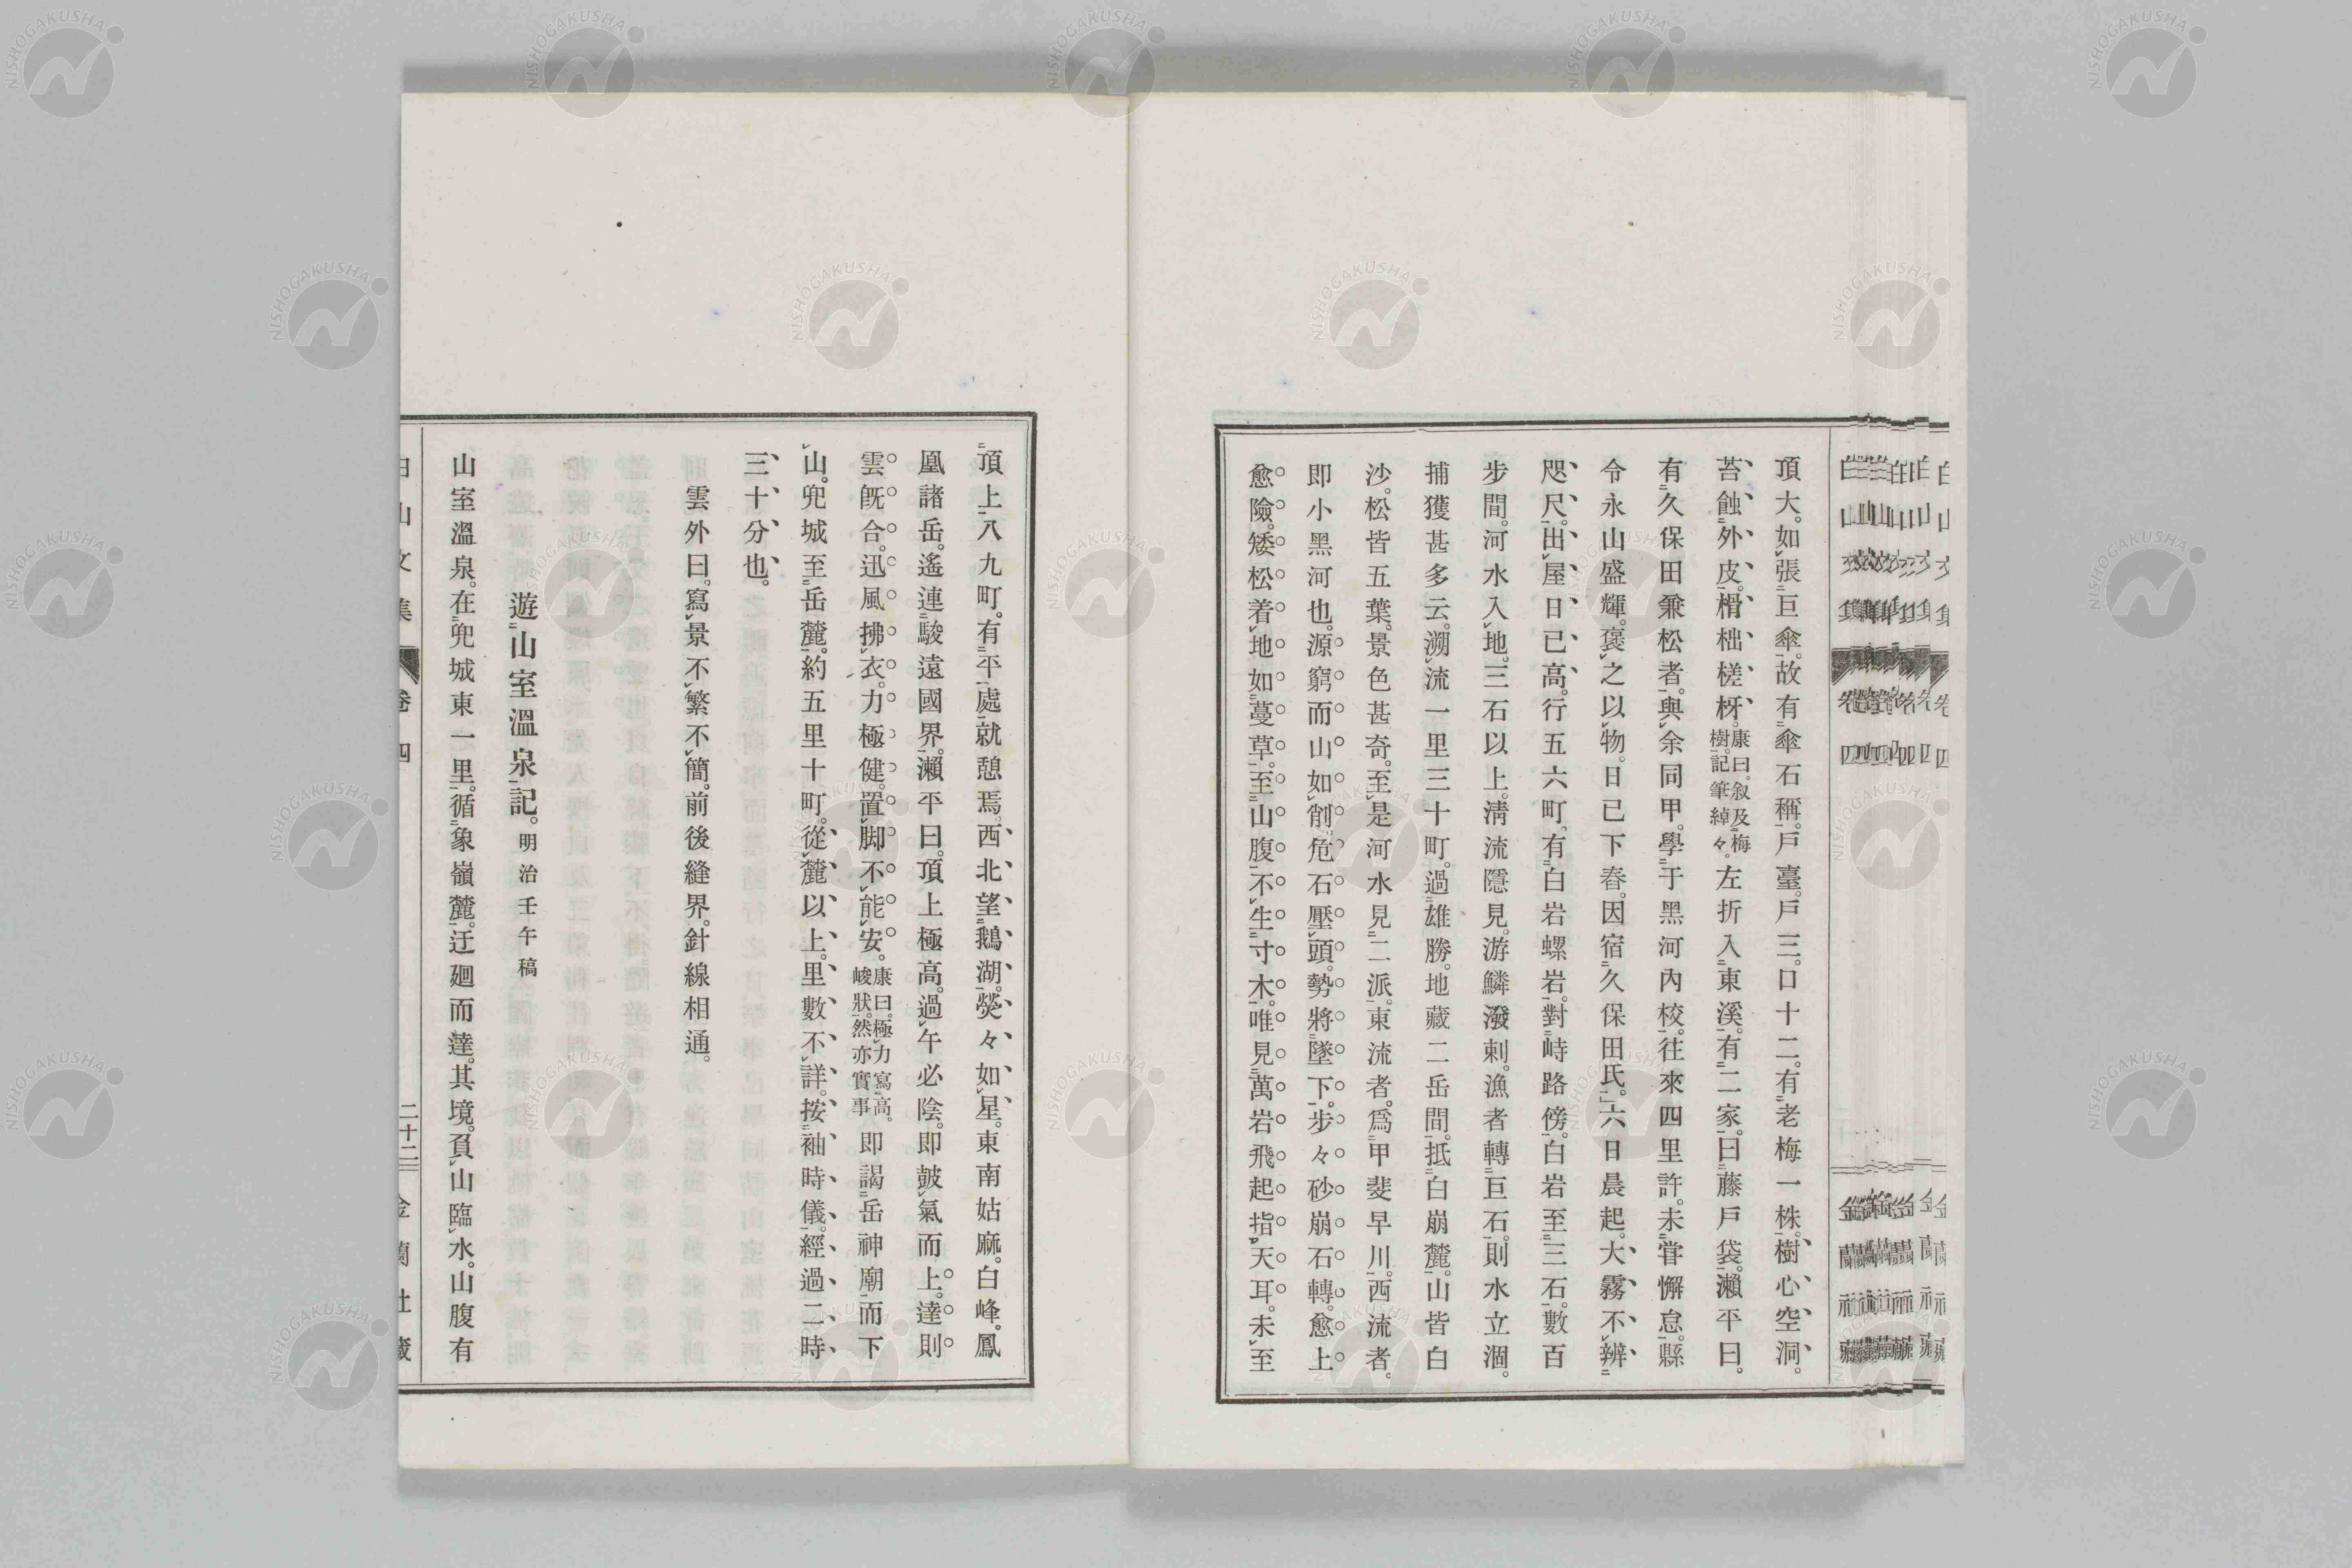 頂大。如張巨傘。故有傘石稱。戶臺。戶三。口十二。有老梅一株。樹心空洞。
苔蝕外皮。榾柮槎枒。康曰。叙及梅樹。記筆綽々。左折入東溪。有二家。曰藤戶袋。瀨平曰。
有久保田兼松者。與余同甲。學于黑河內校。往來四里許。未甞懈怠。縣
令永山盛輝。褒之以物。日已下舂。因宿久保田氏。六日晨起。大霧不辨
咫尺。出屋日已高。行五六町。有白岩螺岩。對峙路傍。白岩至三石。數百
步間。河水入地。三石以上。淸流隱見。游鱗潑剌。漁者轉巨石。則水立涸。
捕獲甚多云。溯流一里三十町。過雄勝。地藏二岳間。抵白崩麓。山皆白
沙。松皆五葉。景色甚奇。至是河水見二派。東流者。爲甲斐早川。西流者。
即小黑河也。源窮而山如削。危石壓頭。勢將墜下。步々砂崩石轉。愈上
愈險。矮松着地如蔓草。至山腹不生寸木。唯見萬岩飛起指天耳。未至
頂上八九町。有平處就憩焉。西北望鵝湖。熒々如星。東南姑麻。白峰。鳳
凰諸岳。遙連駿遠國界。瀨平曰。頂上極高。過午必陰。即皷氣而上。達則
雲旣合。迅風拂衣。力極健。置脚不能安。康曰。極力寫高峻狀。然亦實事。即謁岳神廟而下
山。兜城至岳麓。約五里十町。從麓以上。里數不詳。按袖時儀。經過二時
三十分也。
雲外曰。寫景不繁不簡。前後縫界。針線相通。
遊山室溫泉記。明治壬午稿
山室溫泉。在兜城東一里。循象嶺麓。迂廻而達。其境。負山臨水。山腹有
白山文集 卷四 二十二 金蘭社藏